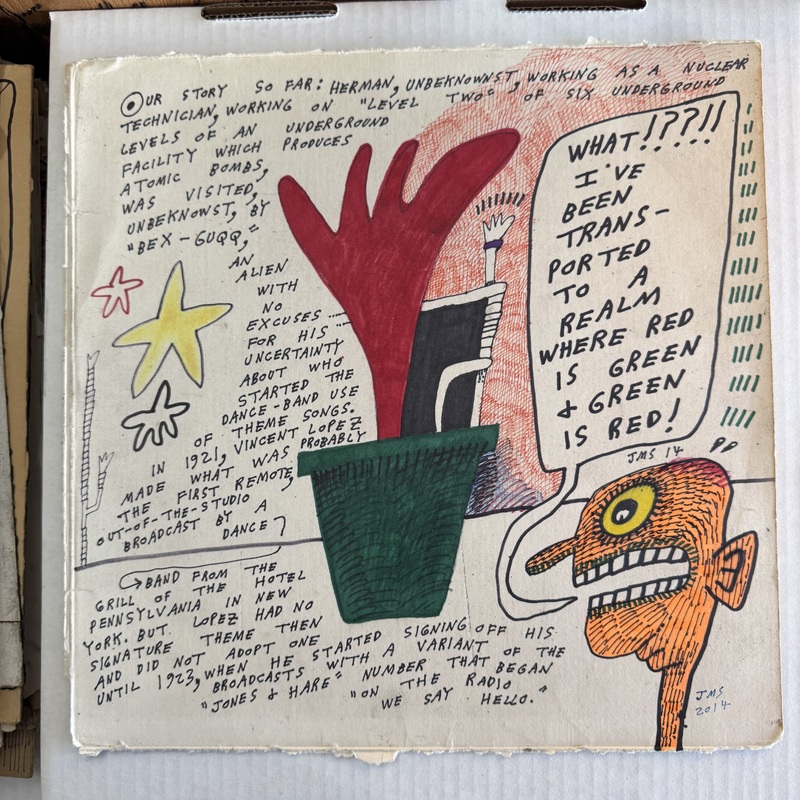 OUR STORY SO FAR: HERMAN, UNBEKNOWNST, WORKING AS A NUCLEAR
TECHNICIAN, WORKING ON "LEVEL TWO", OF SIX UNDERGROUND
LEVELS OF AN UNDERGROUND
FACILITY WHICH PRODUCES
ATOMIC BOMBS,
WAS VISITED,
UNBEKNOWST, BY
"BEX-GUQQ,"
AN
ALIEN
WITH
NO
EXCUSES
FOR HIS
UNCERTAINTY
ABOUT WHO
STARTED THE
DANCE-BAND USE
OF THEME SONGS.
IN 1921, VINCENT LOPEZ
MADE WHAT WAS PROBABLY
THE FIRST REMOTE,
OUT-OF-THE-STUDIO
BROADCAST BY A
DANCE
BAND FROM THE
GRILL OF THE HOTEL
PENNSYLVANIA IN NEW
YORK. BUT LOPEZ HAD NO
SIGNATURE THEME THEN
AND DID NOT ADOPT ONE
UNTIL 1923, WHEN HE STARTED SIGNING OFF HIS
BROADCASTS WITH A VARIANT OF THE
"JONES & HARE" NUMBER THAT BEGAN
"ON THE RADIO
WE SAY HELLO."
WHAT!??!!
I'VE
BEEN
TRANS-
PORTED
TO A
REALM
WHERE RED
IS GREEN
& GREEN
IS RED!
JMS 14
JMS
2014